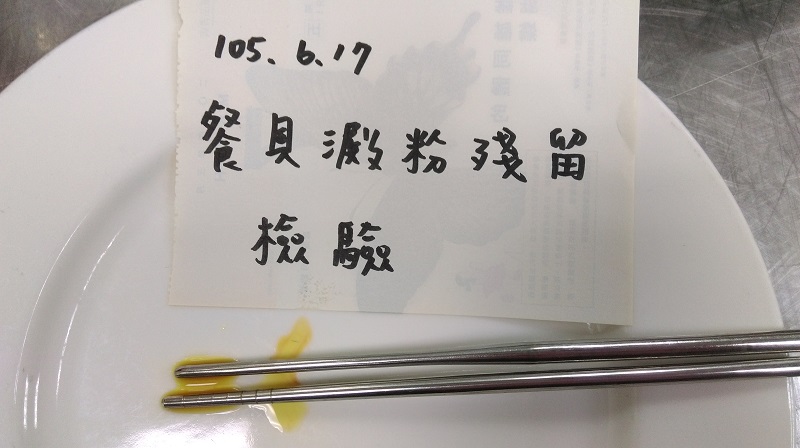 105.6.17
餐貝澱粉殘留
檢驗